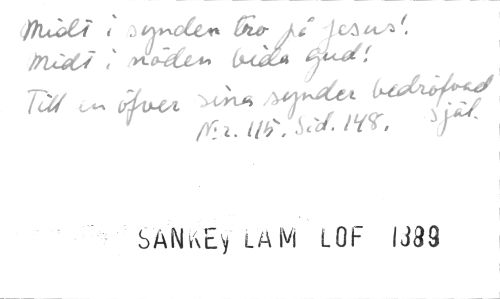 Midt i synden tro på Jesus!
Midt i nöden bida Gud!
Till en öfver sina synder bedröfvad
själ.
N:r. 115. Sid. 148.
SANKEY LAM LOF 1889